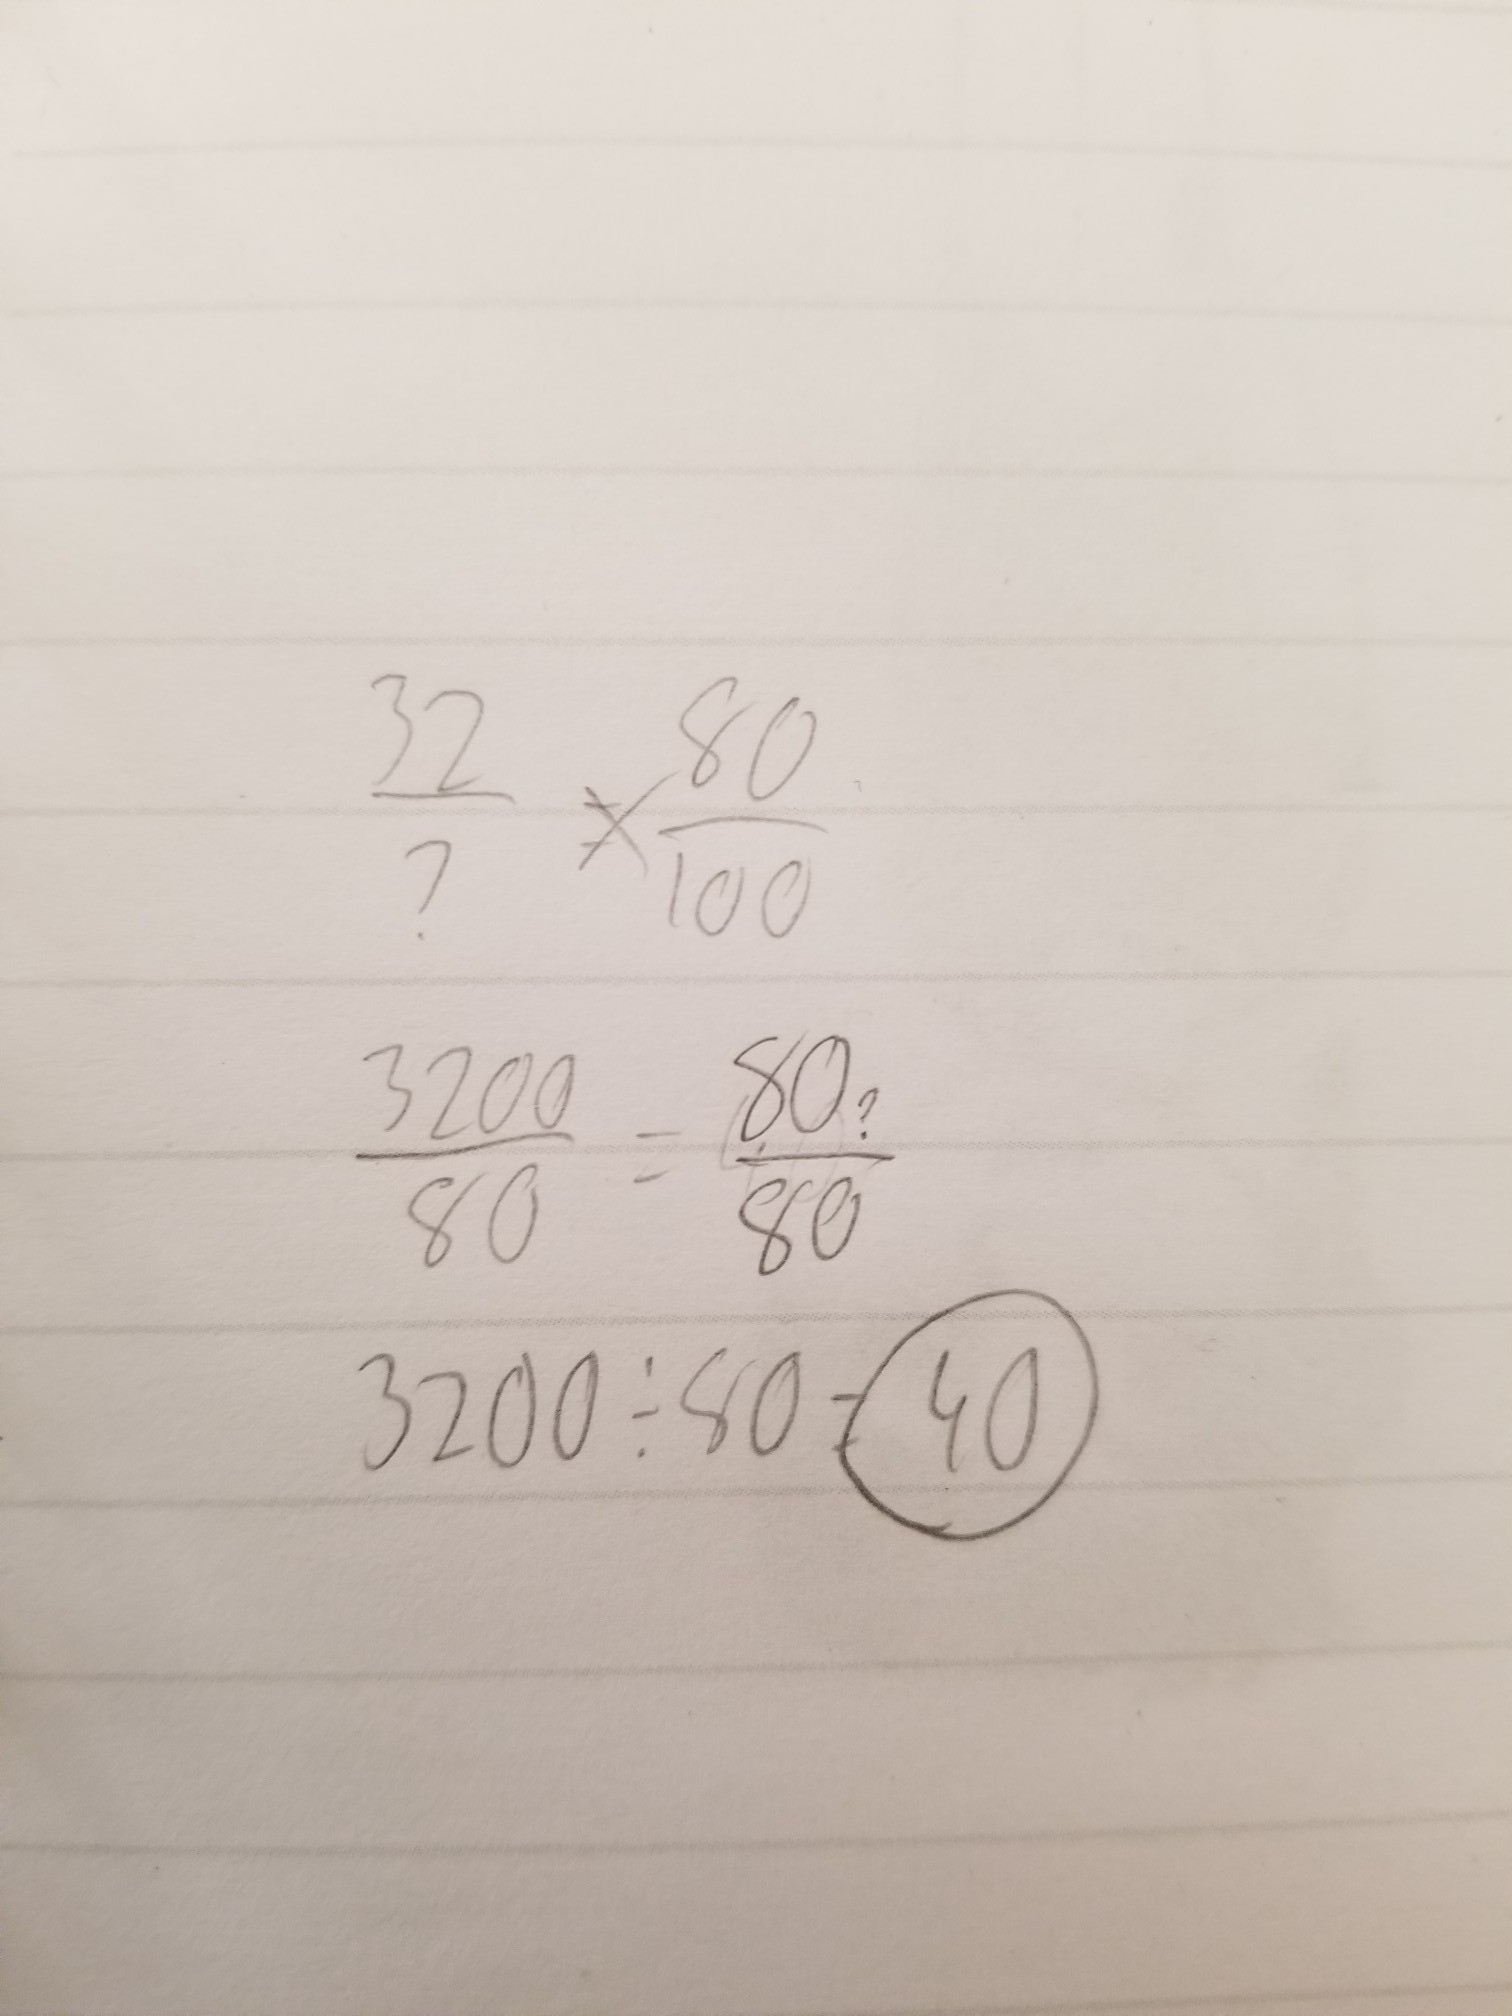 32/? = 80/100
3200/80 = 80?/80
3200÷80=40